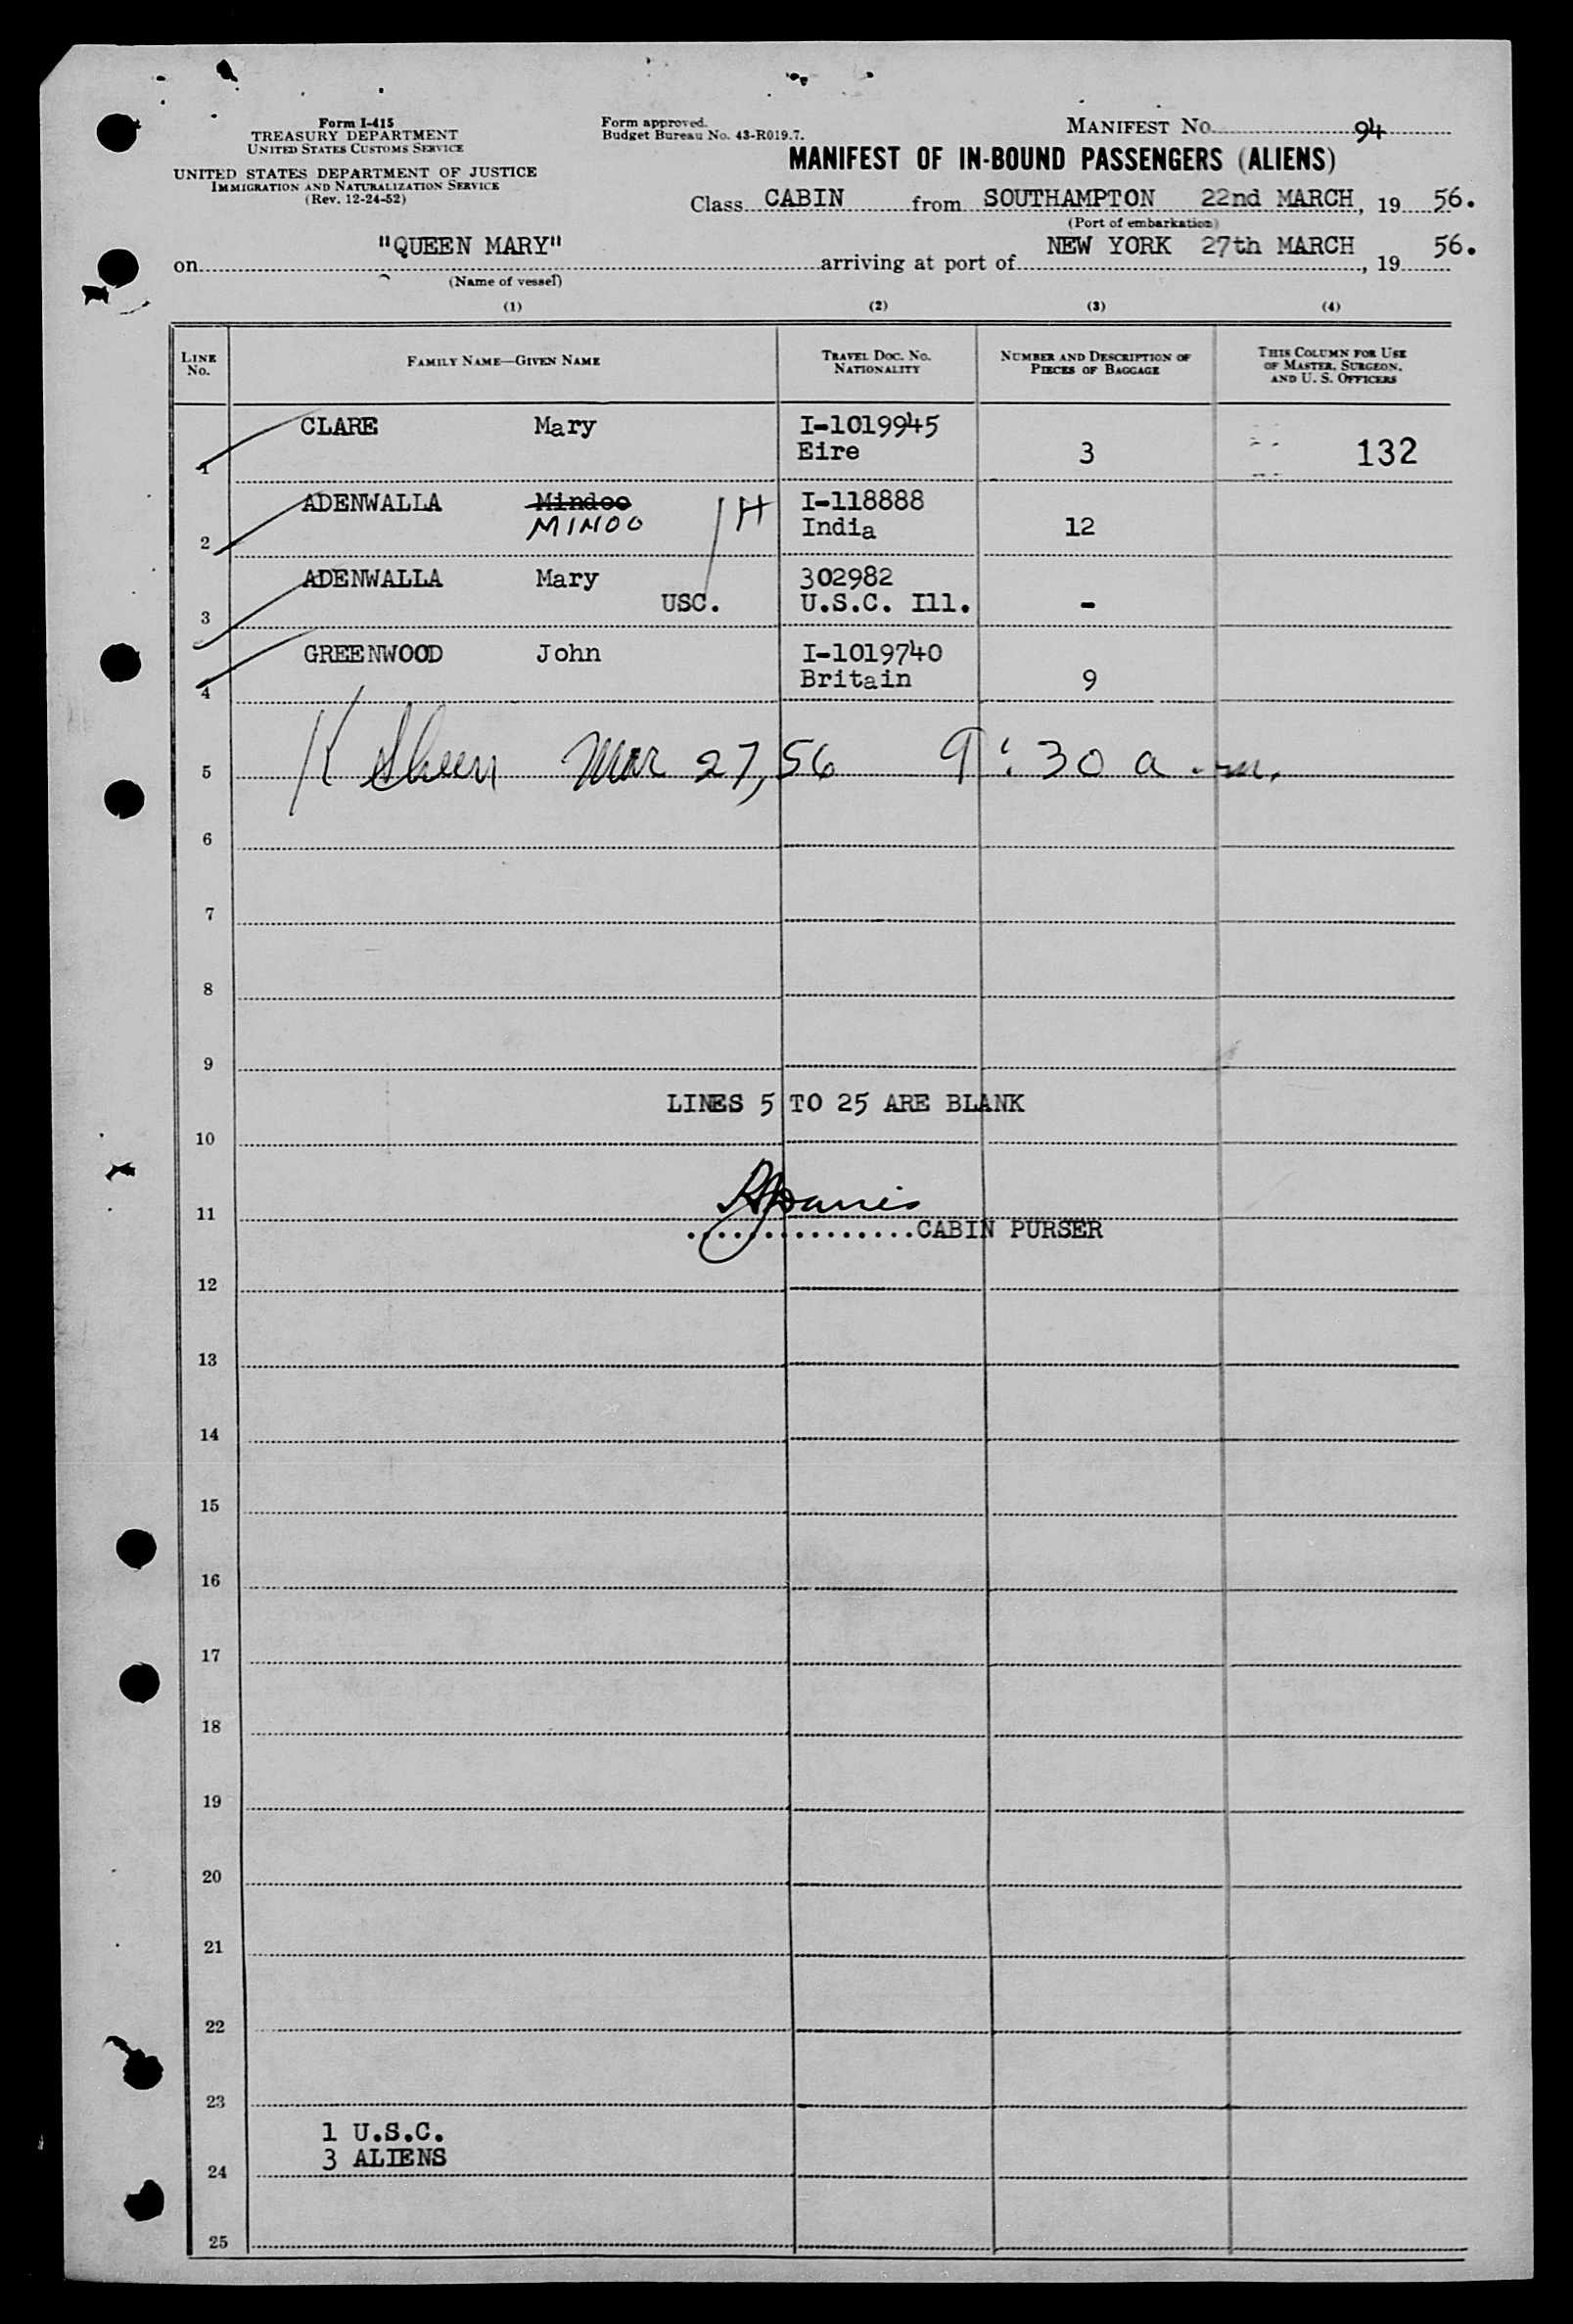 Form I-415
TREASURY DEPARTMENT
UNITED STATES CUSTOMS SERVICE
UNITED STATES DEPARTMENT OF JUSTICE
IMMIGRATION AND NATURALIZATION SERVICE
(Rev. 12-24-52)
Form approved.
Budget Bureau No. 43-R019.7.
MANIFEST NO. 94
MANIFEST OF IN-BOUND PASSENGERS (ALIENS)
Class CABIN from SOUTHAMPTON 22nd MARCH, 19 56.
(Port of embarkation)
on "QUEEN MARY" arriving at port of NEW YORK 27th MARCH, 19 56.
(Name of vessel)
(1) (2) (3) (4)
LINE NO. FAMILY NAME—GIVEN NAME TRAVEL DOC. NO. NATIONALITY NUMBER AND DESCRIPTION OF PIECES OF BAGGAGE THIS COLUMN FOR USE OF MASTER, SURGEON, AND U. S. OFFICERS
1 CLARE Mary I-1019945 Eire 3 132
2 ADENWALLA Mindoo MINOO H I-118888 India 12
3 ADENWALLA Mary USC. 302982 U.S.C. Ill. -
4 GREENWOOD John I-1019740 Britain 9
5 K Skeen Mar 27, 56 9:30 a.m.
6
7
8
9
LINES 5 TO 25 ARE BLANK
10
11
CABIN PURSER
12
13
14
15
16
17
18
19
20
21
22
23
1 U.S.C.
3 ALIENS
24
25